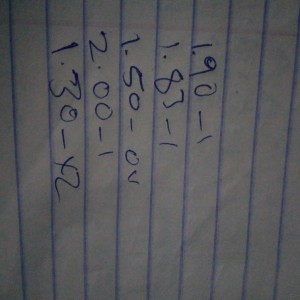 1.90-1
1.83-1
1.50-ov
2.00-1
1.30-x2